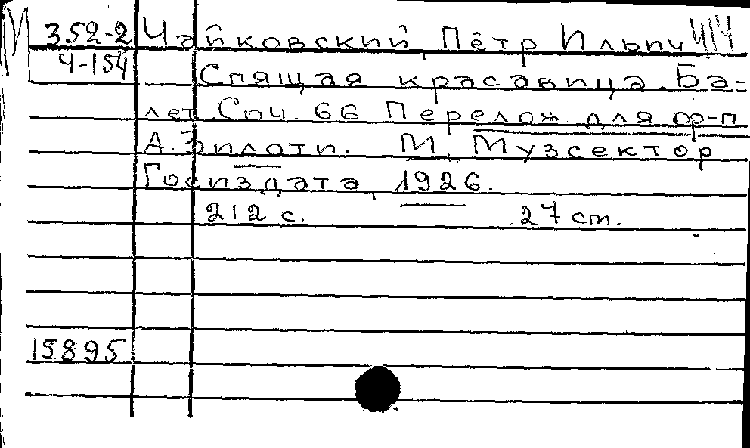 352-2 Чайковский, Пётр Ильич
Ч-154 Спящая красавица. Ба=
лет. Соч. 66 Перелож. для ф-п
А. Зилоти. М., Музсектор
Госиздата, 1926.
212 с. 27 cm.
15895